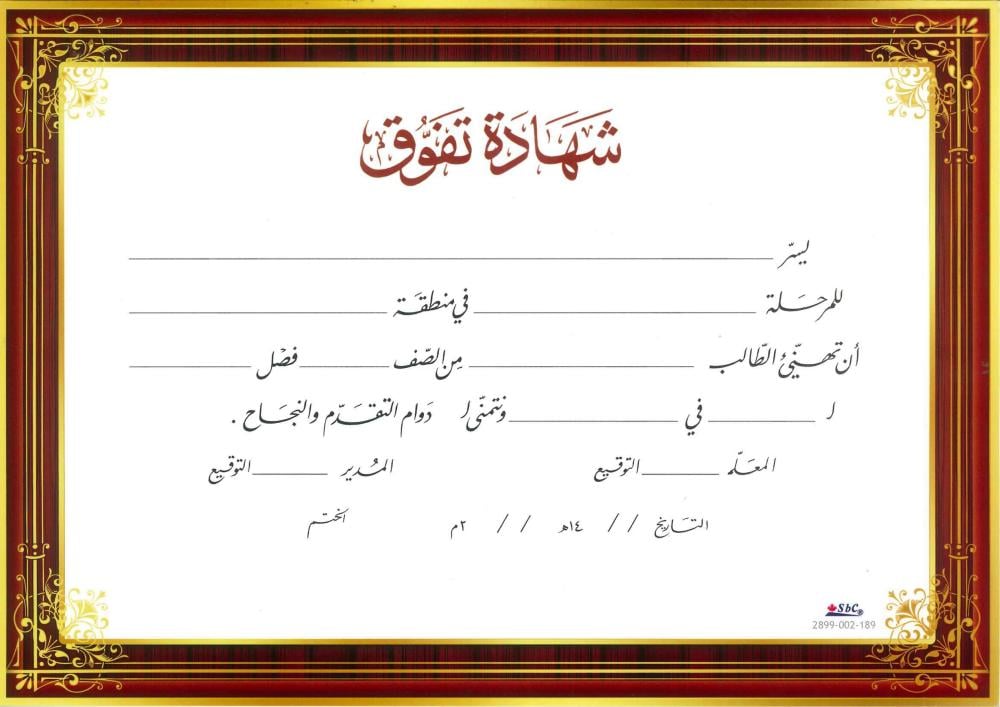 شَهَادَة تَفَوُّق
ليسرّ
للمرحَلة في منطقَة
أن تهنّئ الطّالب مِن الصّف فصْل
لـ في ونتمنّى لـ دَوام التقَدّم والنجَاح .
المعَلّم التوقيع المُدير التوقيع
التَاريخ / / ١٤هـ / / ٢م الختم
SbC®
2899-002-189